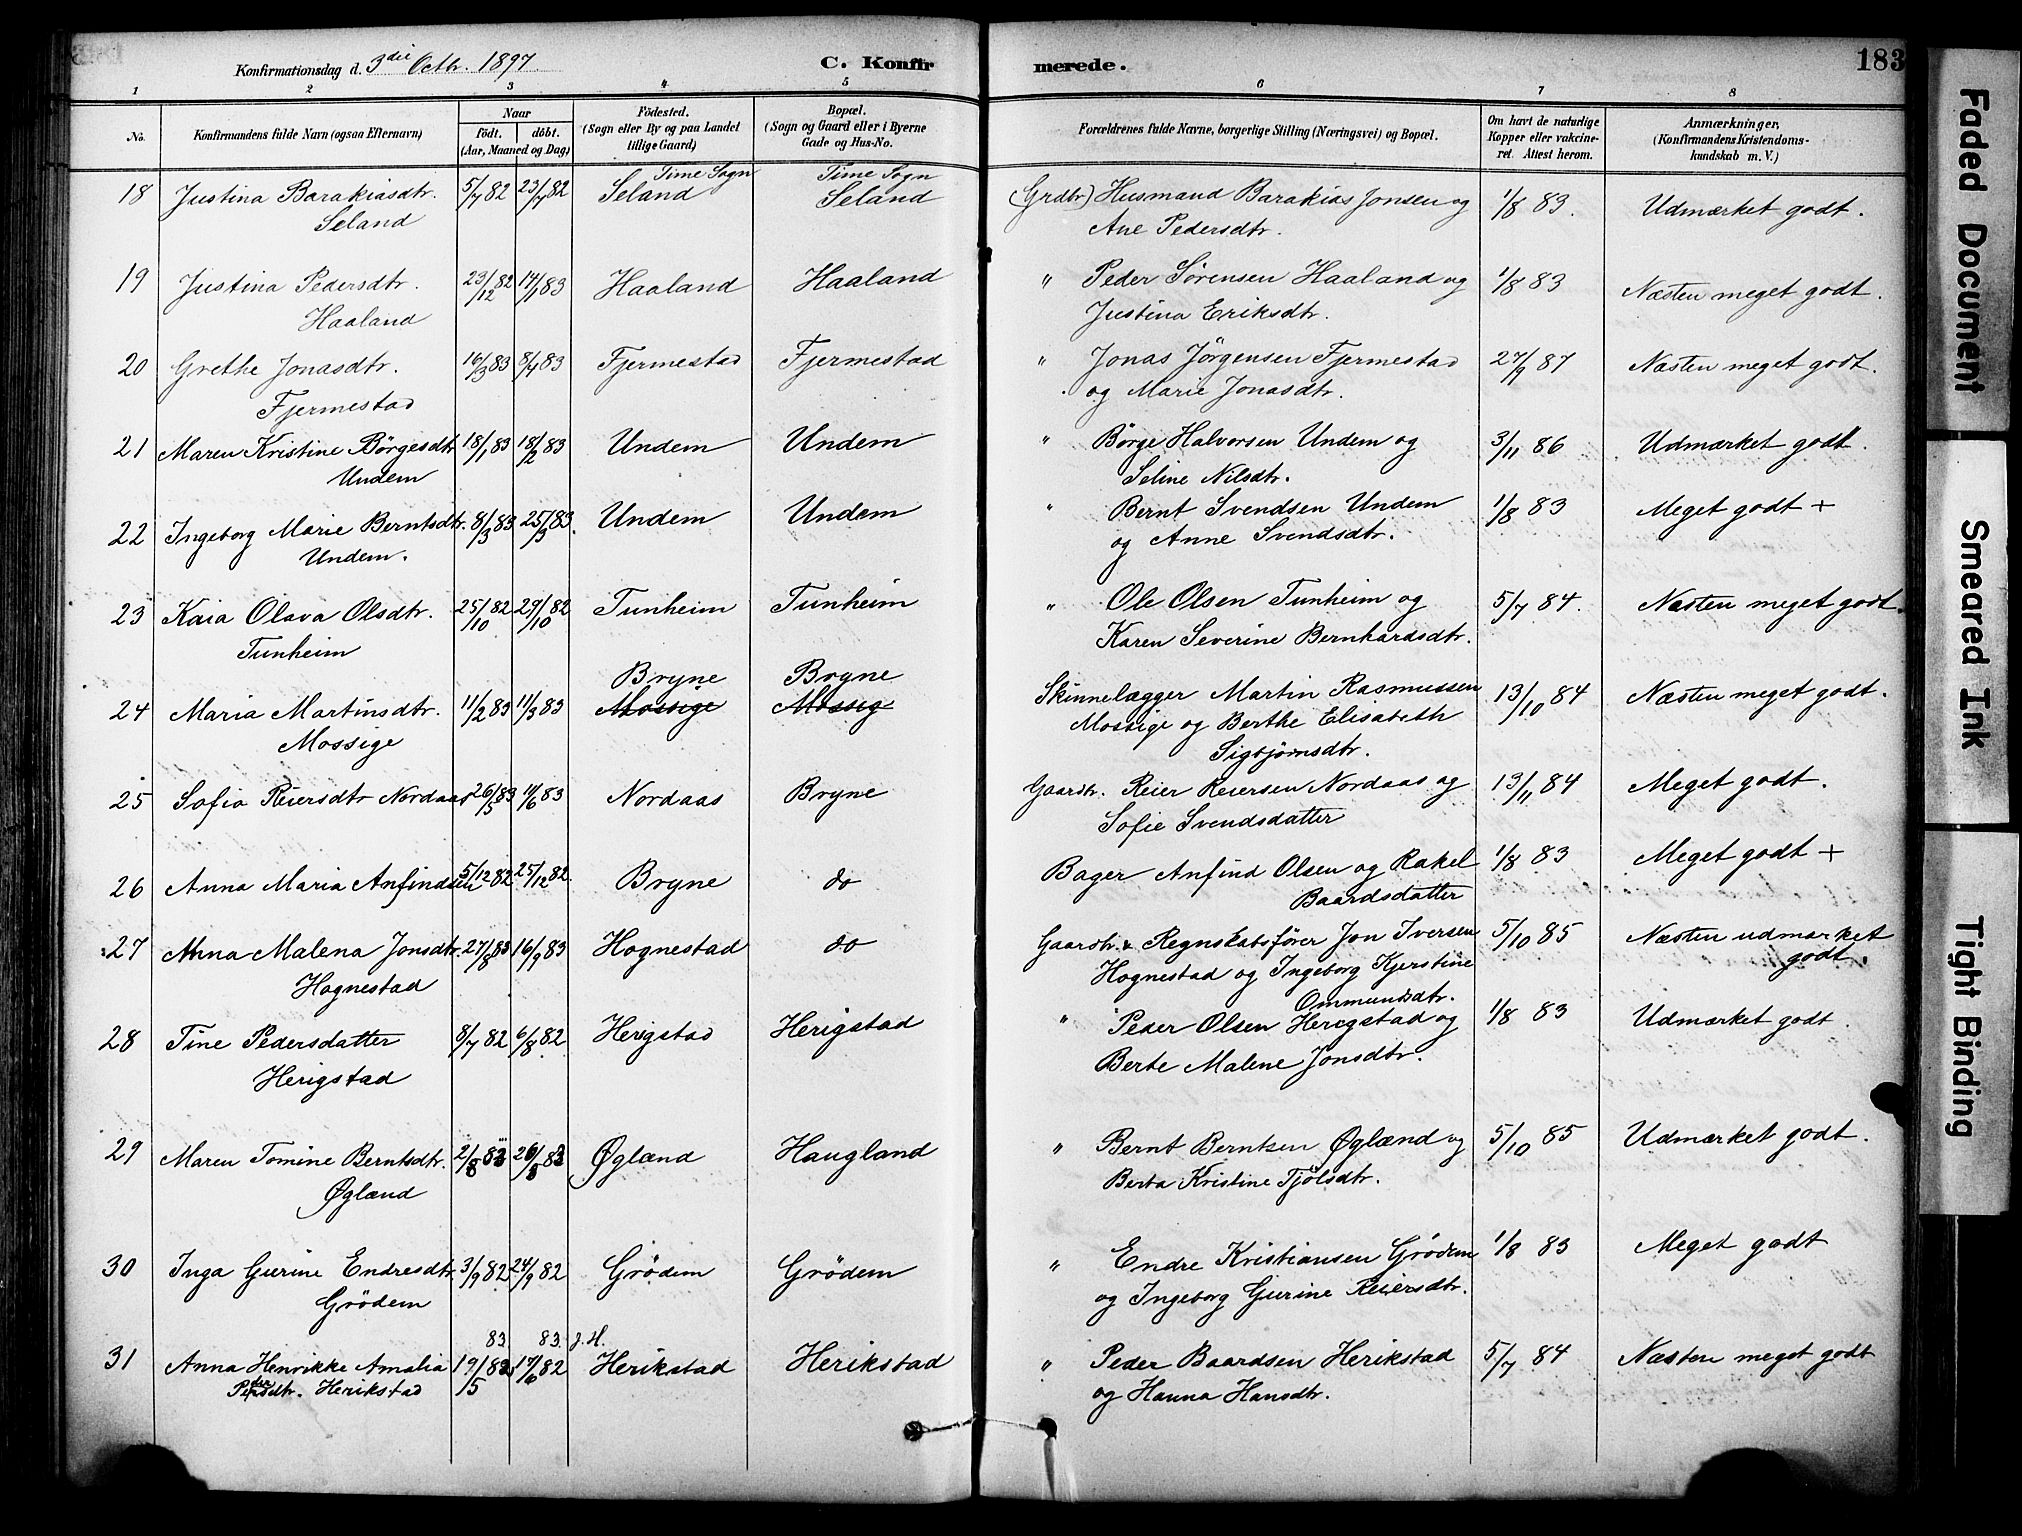 Konfirmationsdag d. 3die Octbr. 1897. C. Konfirmerede. 183
1 2 3 4 5 6 7 8
No. Konfirmandens fulde Navn (ogsaa Efternavn) Naar födt. döbt. (Aar, Maaned og Dag) Födested. (Sogn eller By og paa Landet tillige Gaard) Bopæl. (Sogn og Gaard eller i Byerne Gade og Hus-No. Forældrenes fulde Navne, borgerlige Stilling (Næringsvei) og Bopæl. Om havt de naturlige Kopper eller vakcineret. Attest herom. Anmærkninger, (Konfirmandens Kristendomskundskab m. V.)
Time Sogn Time Sogn
18 Justina Barakiasdtr. 5/7 82 23/7 82 Seland Seland (Grdbr) Husmand Barakias Jonsen og 1/8 83. Udmærket godt.
Seland Ane Pedersdtr.
19 Justina Pedersdtr. 23/12 82 14/1 83 Haaland Haaland " Peder Sørensen Haaland og 1/8 83 Næsten meget godt.
Haaland Justina Eriksdtr.
20 Grethe Jonasdtr. 16/3 83 8/4 83 Fjermestad Fjermestad " Jonas Jörgensen Fjermestad 27/9 87 Næsten meget godt.
Fjermestad og Marie Jonasdtr.
21 Maren Kristine Börgesdtr 18/1 83 18/2 83 Undem Undem " Börge Halvorsen Undem og 3/11 86 Udmærket godt.
Undem Seline Nilsdtr.
22 Ingeborg Marie Berntsdtr. 8/3 83 25/3 83. Undem Undem " Bernt Svendsen Undem 1/8 83 Meget godt +
Undem. og Anne Svendsdtr.
23 Kaia Olava Olsdtr. 25/10 82 29/10 82 Tunheim Tunheim " Ole Olsen Tunheim og 5/7 84. Næsten meget godt.
Tunheim Karen Severine Bernhardsdtr.
Bryne Bryne
24 Maria Martinsdtr. 11/2 83 11/3 83 Mossige Mossig Skinnelægger Martin Rasmussen 13/10 84 Næsten meget godt.
Mossige Mossige og Berthe Elisabeth
Sigbjørnsdtr.
25 Sofia Reiersdtr Nordaas 26/5 83 11/6 83 Nordaas Bryne Gaardbr. Reier Reiersen Nordaas og 13/11 84 Meget godt.
Sofie Svendsdatter
26 Anna Maria Anfindsen 5/12 82 25/12 82. Bryne do Bager Anfind Olsen og Rakel 1/8 83 Meget godt +
Baardsdatter
27 Anna Malena Jonsdtr. 27/8 83 16/9 83 Hognestad do Gaardbr. & Regnskabsfører Jon Iversen 5/10 85 Næsten udmærket
Hognestad Hognestad og Ingeborg Kjerstine godt.
Ommundsdtr.
28 Tine Pedersdatter 8/7 82 6/8 82 Herigstad Herigstad " Peder Olsen Heregstad og 1/8 83 Udmærket godt.
Herigstad Berte Malene Jonsdtr.
29 Maren Tomine Berntsdtr. 2/8 83 26/8 83 Øglænd Haugland " Bernt Berntsen Øglænd og 5/10 85 Udmærket godt.
Øglænd Berta Kristine Tjölsdtr.
30 Inga Gurine Endresdtr. 3/9 82 24/9 82 Grödem Grödem " Endre Kristiansen Grödem 1/8 83 Meget godt
Grödem og Ingeborg Gurine Reiersdtr.
83 83. J. H.
31 Anna Henrikke Amalia 19/5 82 17/6 82 Herikstad Herikstad " Peder Baardsen Herikstad 5/7 84 Næsten meget godt
Pedersdtr. Herikstad og Hanna Hansdtr.
Faded Document
Smeared Ink
Tight Binding